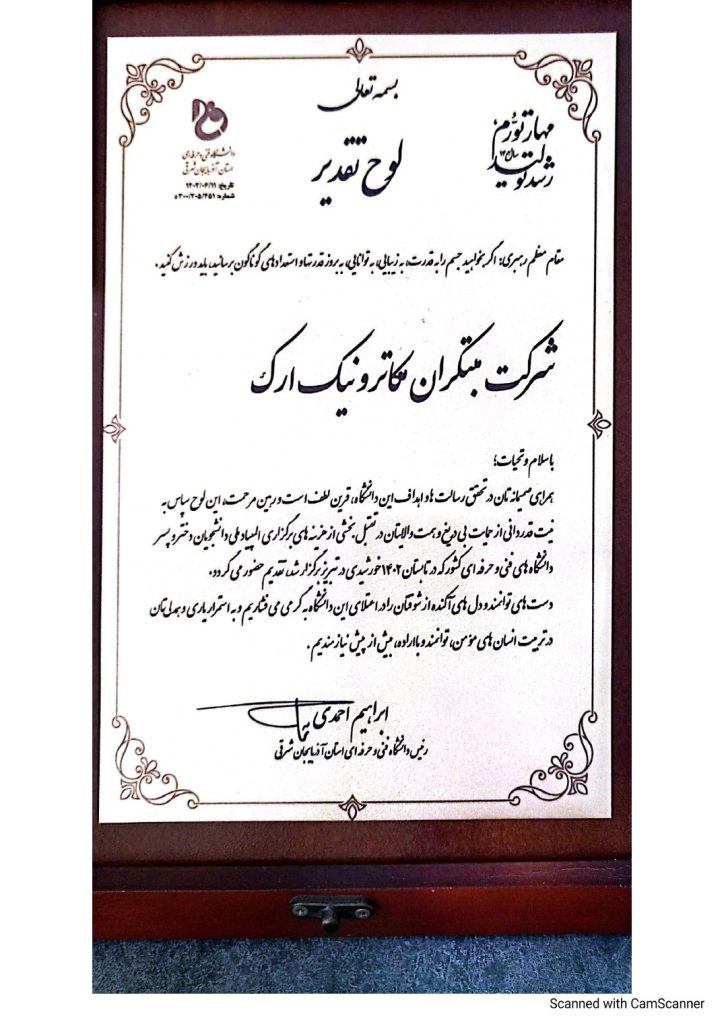 بسمه تعالی
مهار تورم،
رشد تولید
دانشگاه فنی و حرفه‌ای
استان آذربایجان شرقی
تاریخ: ۱۴۰۲/۰۶/۱۱
شماره: ۵۳۰۰/۲۰۵/۴۵۱
لوح تقدیر
مقام معظم رهبری: اگر بخواهید جسم را به قدرت، به زیبایی، به توانایی، به بروز قدرتها و استعدادهای گوناگون برسانید، باید ورزش کنید.
شرکت مبتکران مکاترونیک ارک
با سلام و تحیات؛
همراهی صمیمانه تان در تحقق رسالت ها و اهداف این دانشگاه، قرین لطف است و رهین مرحمت، این لوح سپاس به
نیت قدردانی از حمایت بی دریغ و همت والایتان در تقبل بخشی از هزینه های برگزاری المپیاد ملی دانشجویان دختر و پسر
دانشگاه های فنی و حرفه ای کشور که در تابستان ۱۴۰۲ خورشیدی در تبریز برگزار شد، تقدیم حضور می گردد.
دست های توانمند و دل های آکنده از شوقتان را در اعتلای این دانشگاه به گرمی می فشاریم و به استمرار یاری و همدلی تان
در تربیت انسان های مؤمن، توانمند و بااراده، بیش از پیش نیازمندیم.
ابراهیم احمدی
رئیس دانشگاه فنی و حرفه ای استان آذربایجان شرقی
Scanned with CamScanner